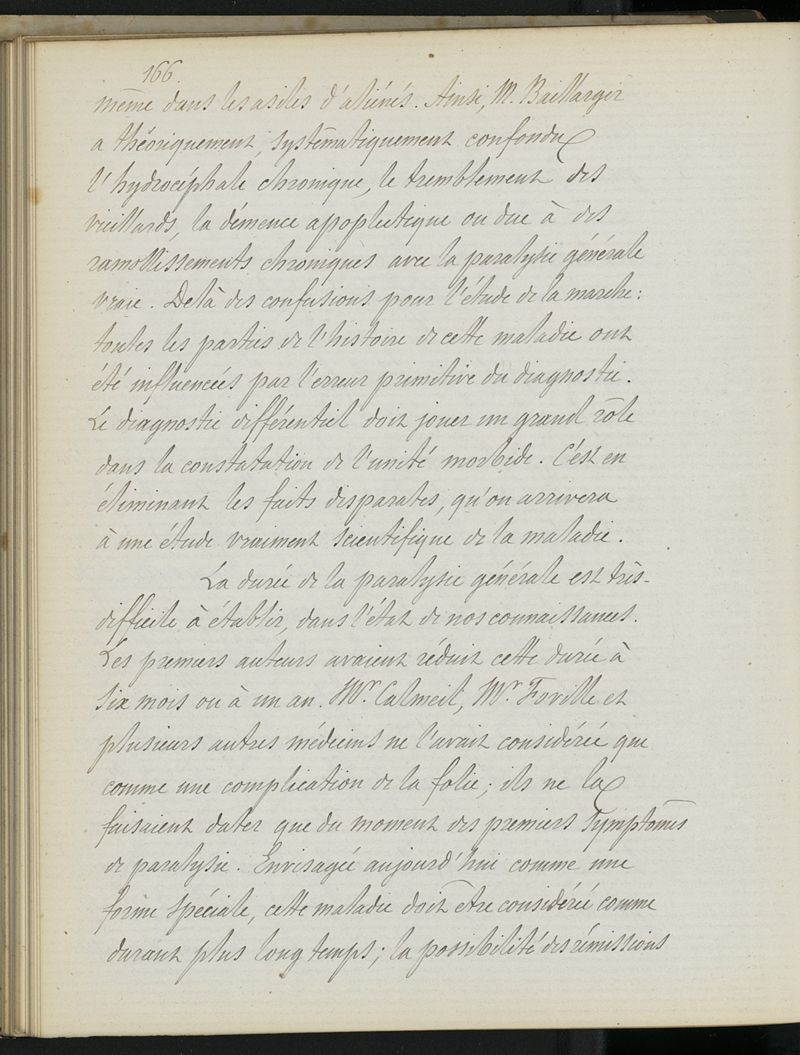 166.
même dans les asiles d'aliénés. Ainsi, M. Baillarger
a théoriquement, systématiquement confondu
l'hydrocéphale chronique, le tremblement des
vieillards, la démence apoplectique ou due à des
ramollissements chroniques avec la paralysie générale
vraie. De là des confusions pour l'étude de la marche:
toutes les parties de l'histoire de cette maladie ont
été influencées par l'erreur primitive du diagnostic.
Le diagnostic différentiel doit jouer un grand rôle
dans la constatation de l'unité morbide. C'est en
éliminant les faits disparates, qu'on arrivera
à une étude vraiment scientifique de la maladie.
La durée de la paralysie générale est très-
difficile à établir, dans l'état de nos connaissances.
Les premiers auteurs avaient réduit cette durée à
six mois ou à un an. Mr. Calmeil, Mr. Foville et
plusieurs autres médecins ne l'avait considérée que
comme une complication de la folie; ils ne la
faisaient dater que du moment des premiers symptômes
de paralysie. Envisagée aujourd'hui comme une
forme spéciale, cette maladie doit être considérée comme
durant plus long temps; la possibilité des rémissions